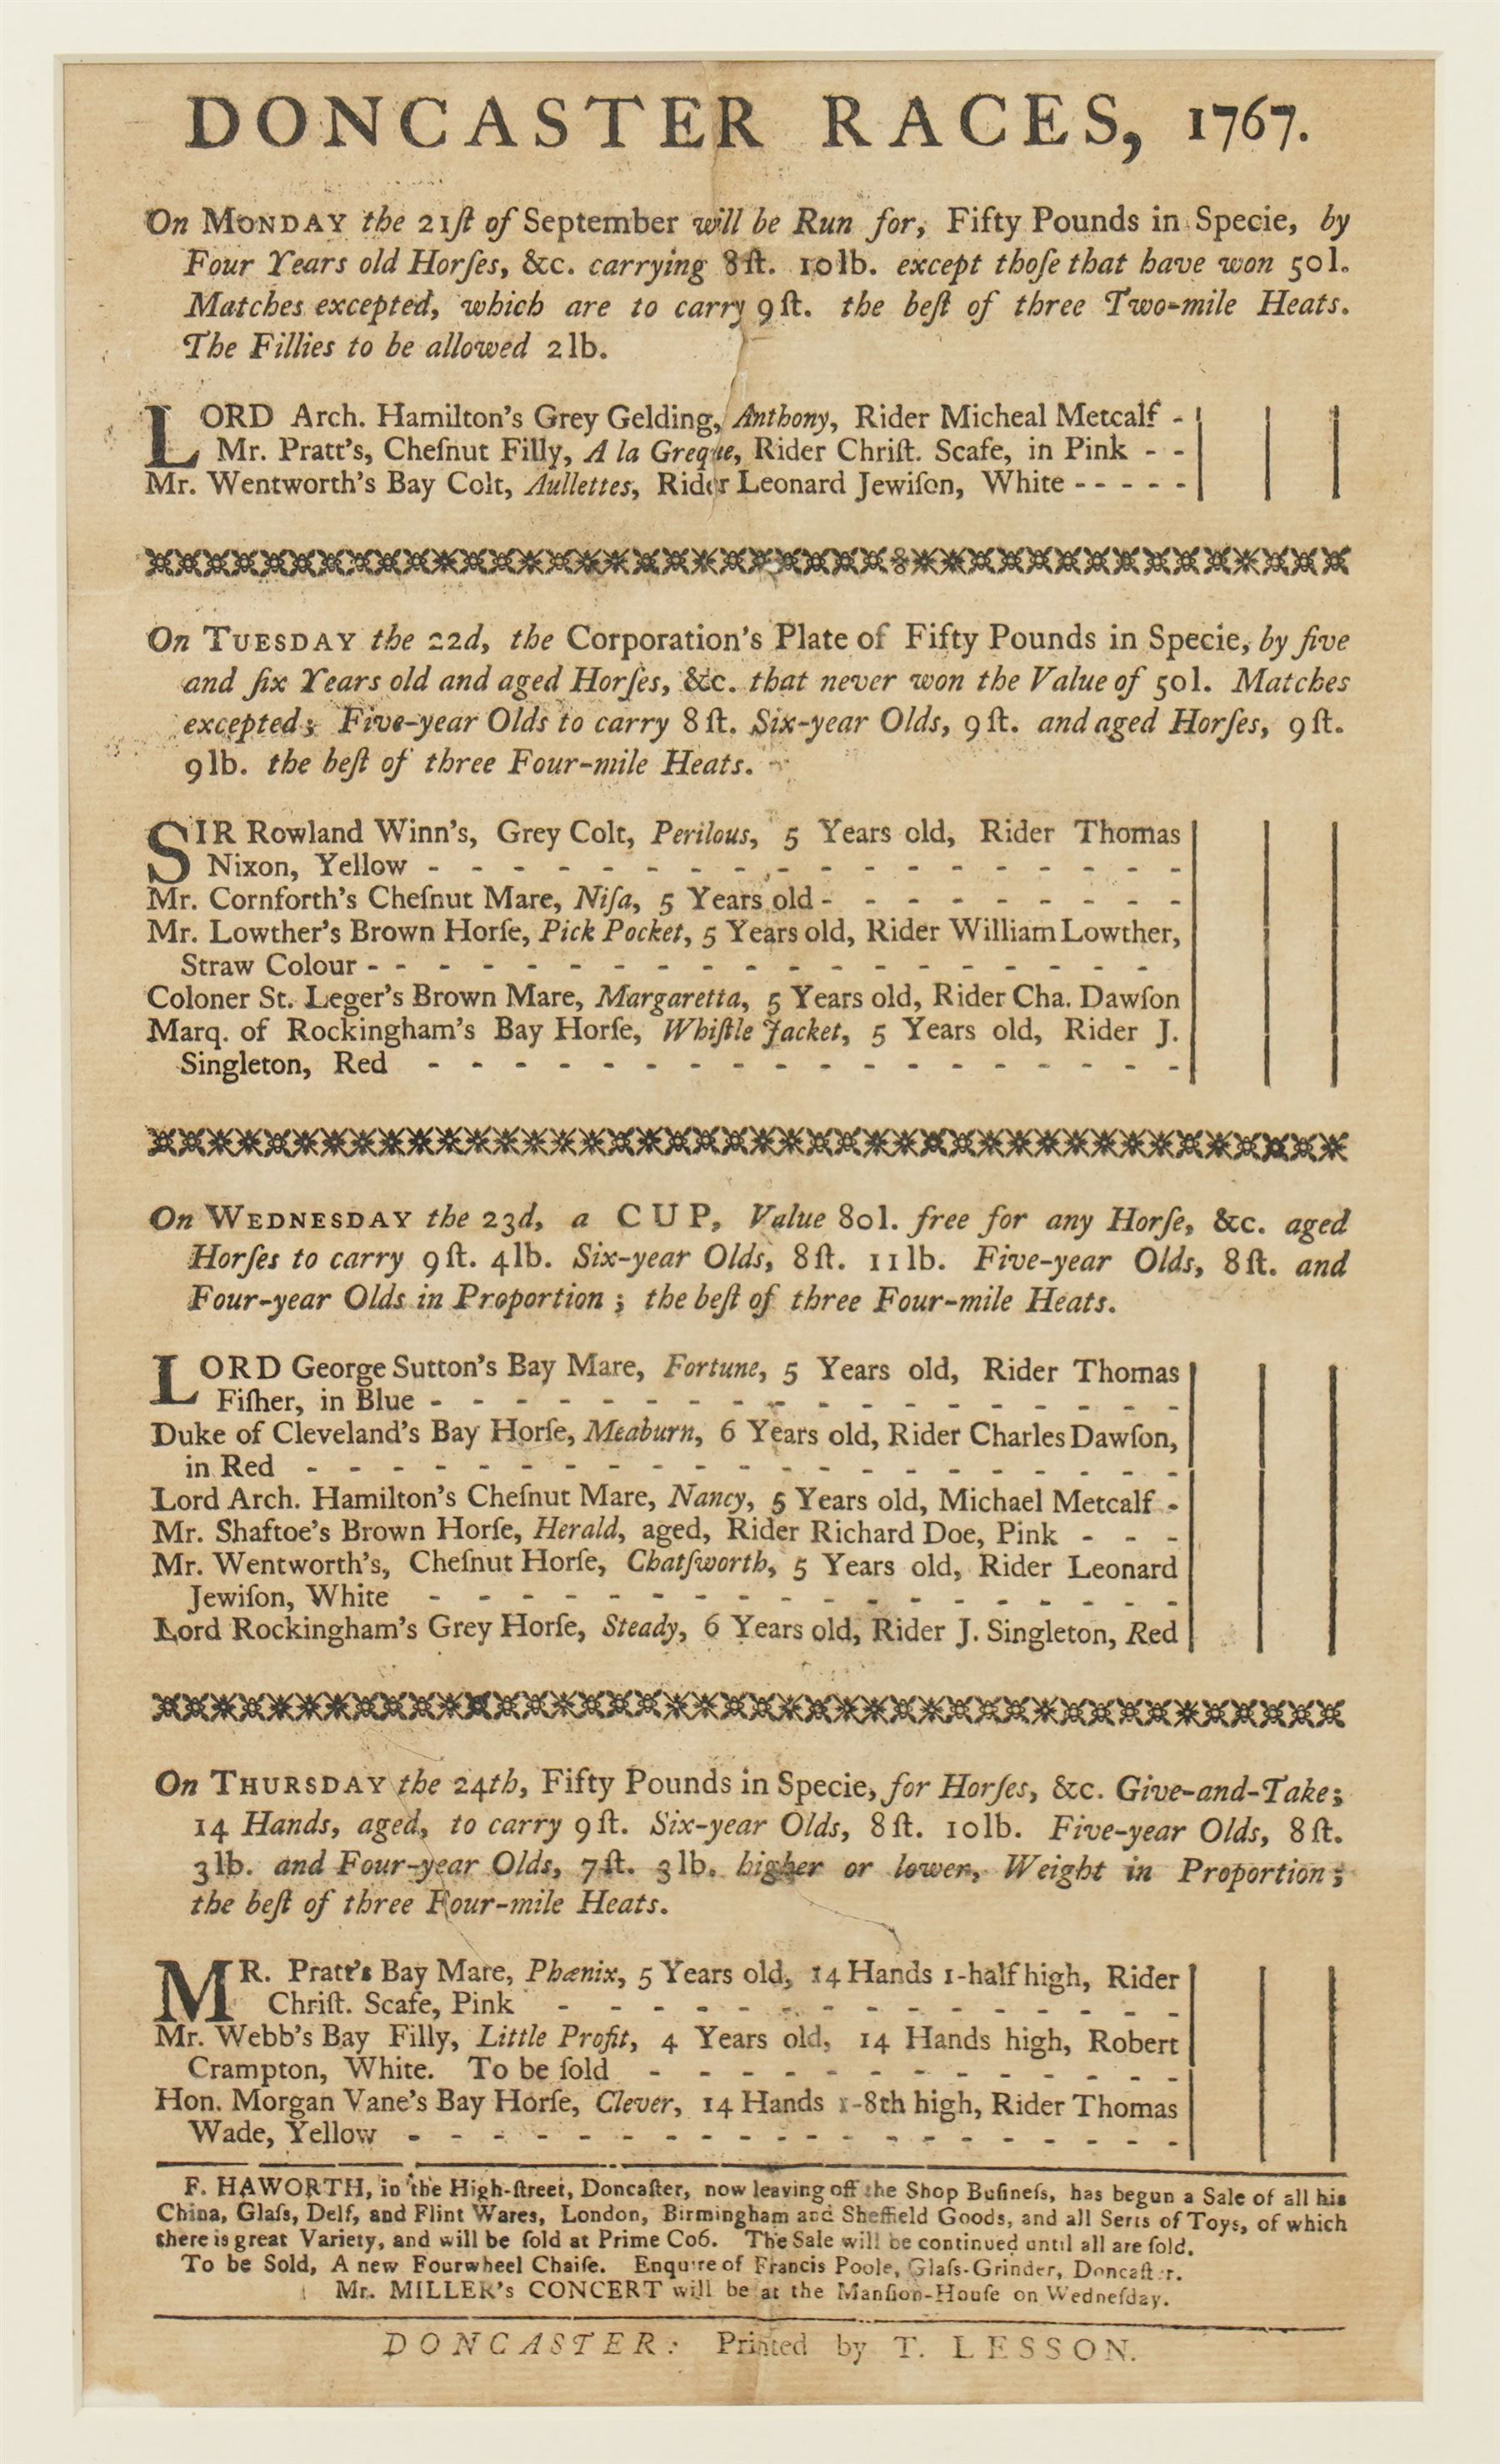 DONCASTER RACES, 1767.
On MONDAY the 21ſt of September will be Run for, Fifty Pounds in Specie, by
Four Years old Horſes, &c. carrying 8ſt. 10lb. except thoſe that have won 50l.
Matches excepted, which are to carry 9ſt. the beſt of three Two-mile Heats.
The Fillies to be allowed 2lb.
LORD Arch. Hamilton's Grey Gelding, Anthony, Rider Micheal Metcalf -
Mr. Pratt's, Cheſnut Filly, A la Greque, Rider Chriſt. Scafe, in Pink - -
Mr. Wentworth's Bay Colt, Aullettes, Rider Leonard Jewiſon, White - - - - -
On TUESDAY the 22d, the Corporation's Plate of Fifty Pounds in Specie, by five
and ſix Years old and aged Horſes, &c. that never won the Value of 50l. Matches
excepted; Five-year Olds to carry 8ſt. Six-year Olds, 9ſt. and aged Horſes, 9ſt.
9lb. the beſt of three Four-mile Heats.
SIR Rowland Winn's, Grey Colt, Perilous, 5 Years old, Rider Thomas
Nixon, Yellow - - - - - - - - - - - - - - - - - -
Mr. Cornforth's Cheſnut Mare, Niſa, 5 Years old - - - - - - - - -
Mr. Lowther's Brown Horſe, Pick Pocket, 5 Years old, Rider William Lowther,
Straw Colour - - - - - - - - - - - - - - - - - - -
Coloner St. Leger's Brown Mare, Margaretta, 5 Years old, Rider Cha. Dawſon
Marq. of Rockingham's Bay Horſe, Whiſtle Jacket, 5 Years old, Rider J.
Singleton, Red - - - - - - - - - - - - - - - - - -
On WEDNESDAY the 23d, a CUP, Value 80l. free for any Horſe, &c. aged
Horſes to carry 9ſt. 4lb. Six-year Olds, 8ſt. 11lb. Five-year Olds, 8ſt. and
Four-year Olds in Proportion; the beſt of three Four-mile Heats.
LORD George Sutton's Bay Mare, Fortune, 5 Years old, Rider Thomas
Fiſher, in Blue - - - - - - - - - - - - - - - - - -
Duke of Cleveland's Bay Horſe, Meaburn, 6 Years old, Rider Charles Dawſon,
in Red - - - - - - - - - - - - - - - - - - - - -
Lord Arch. Hamilton's Cheſnut Mare, Nancy, 5 Years old, Michael Metcalf -
Mr. Shaftoe's Brown Horſe, Herald, aged, Rider Richard Doe, Pink - - -
Mr. Wentworth's, Cheſnut Horſe, Chatſworth, 5 Years old, Rider Leonard
Jewiſon, White - - - - - - - - - - - - - - - - - -
Lord Rockingham's Grey Horſe, Steady, 6 Years old, Rider J. Singleton, Red
On THURSDAY the 24th, Fifty Pounds in Specie, for Horſes, &c. Give-and-Take;
14 Hands, aged, to carry 9ſt. Six-year Olds, 8ſt. 10lb. Five-year Olds, 8ſt.
3lb. and Four-year Olds, 7ſt. 3lb. higher or lower, Weight in Proportion;
the beſt of three Four-mile Heats.
MR. Pratt's Bay Mare, Phænix, 5 Years old, 14 Hands 1-half high, Rider
Chriſt. Scafe, Pink - - - - - - - - - - - - - - -
Mr. Webb's Bay Filly, Little Profit, 4 Years old, 14 Hands high, Robert
Crampton, White. To be ſold - - - - - - - - - - - - -
Hon. Morgan Vane's Bay Horſe, Clever, 14 Hands 1-8th high, Rider Thomas
Wade, Yellow - - - - - - - - - - - - - - - - - - -
F. HAWORTH, in the High-ſtreet, Doncaſter, now leaving off the Shop Buſineſs, has begun a Sale of all his
China, Glaſs, Delf, and Flint Wares, London, Birmingham and Sheffield Goods, and all Serts of Toys, of which
there is great Variety, and will be ſold at Prime Co6. The Sale will be continued until all are ſold.
To be Sold, A new Fourwheel Chaiſe. Enquire of Francis Poole, Glaſs-Grinder, Doncaſter.
Mr. MILLER's CONCERT will be at the Manſion-Houſe on Wedneſday.
DONCASTER: Printed by T. LESSON.